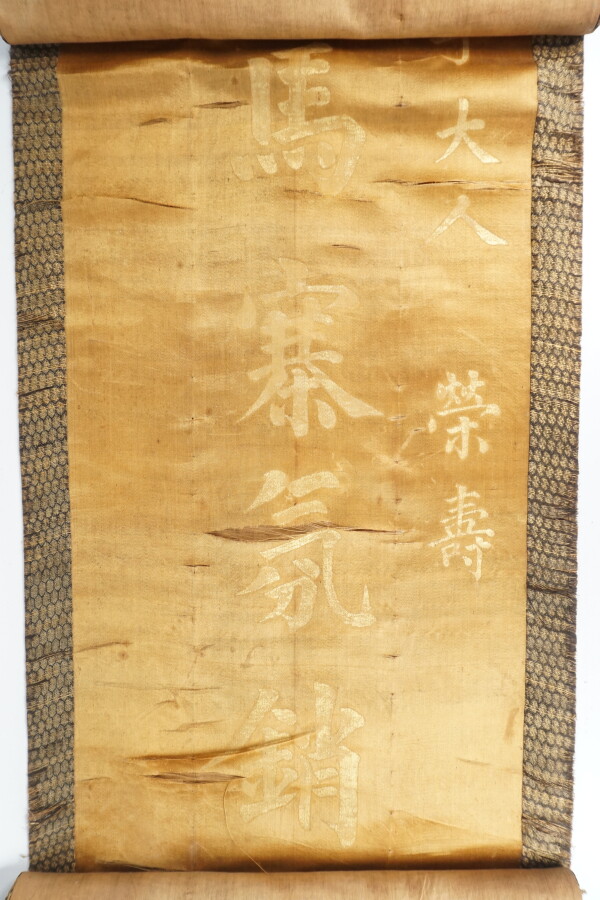 大人 榮壽
馬寨氛銷